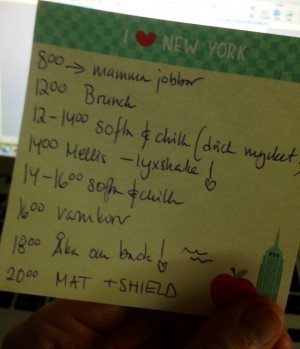 I ❤ NEW YORK
8⁰⁰ → mamma jobbar
12⁰⁰ Brunch
12-14⁰⁰ softa & chilla (drick mycket)
14⁰⁰ Mellis - lyxshake!
14-16⁰⁰ softa & chilla
16⁰⁰ varmkorv
18⁰⁰ Åka och bada!
20⁰⁰ MAT + SHIELD